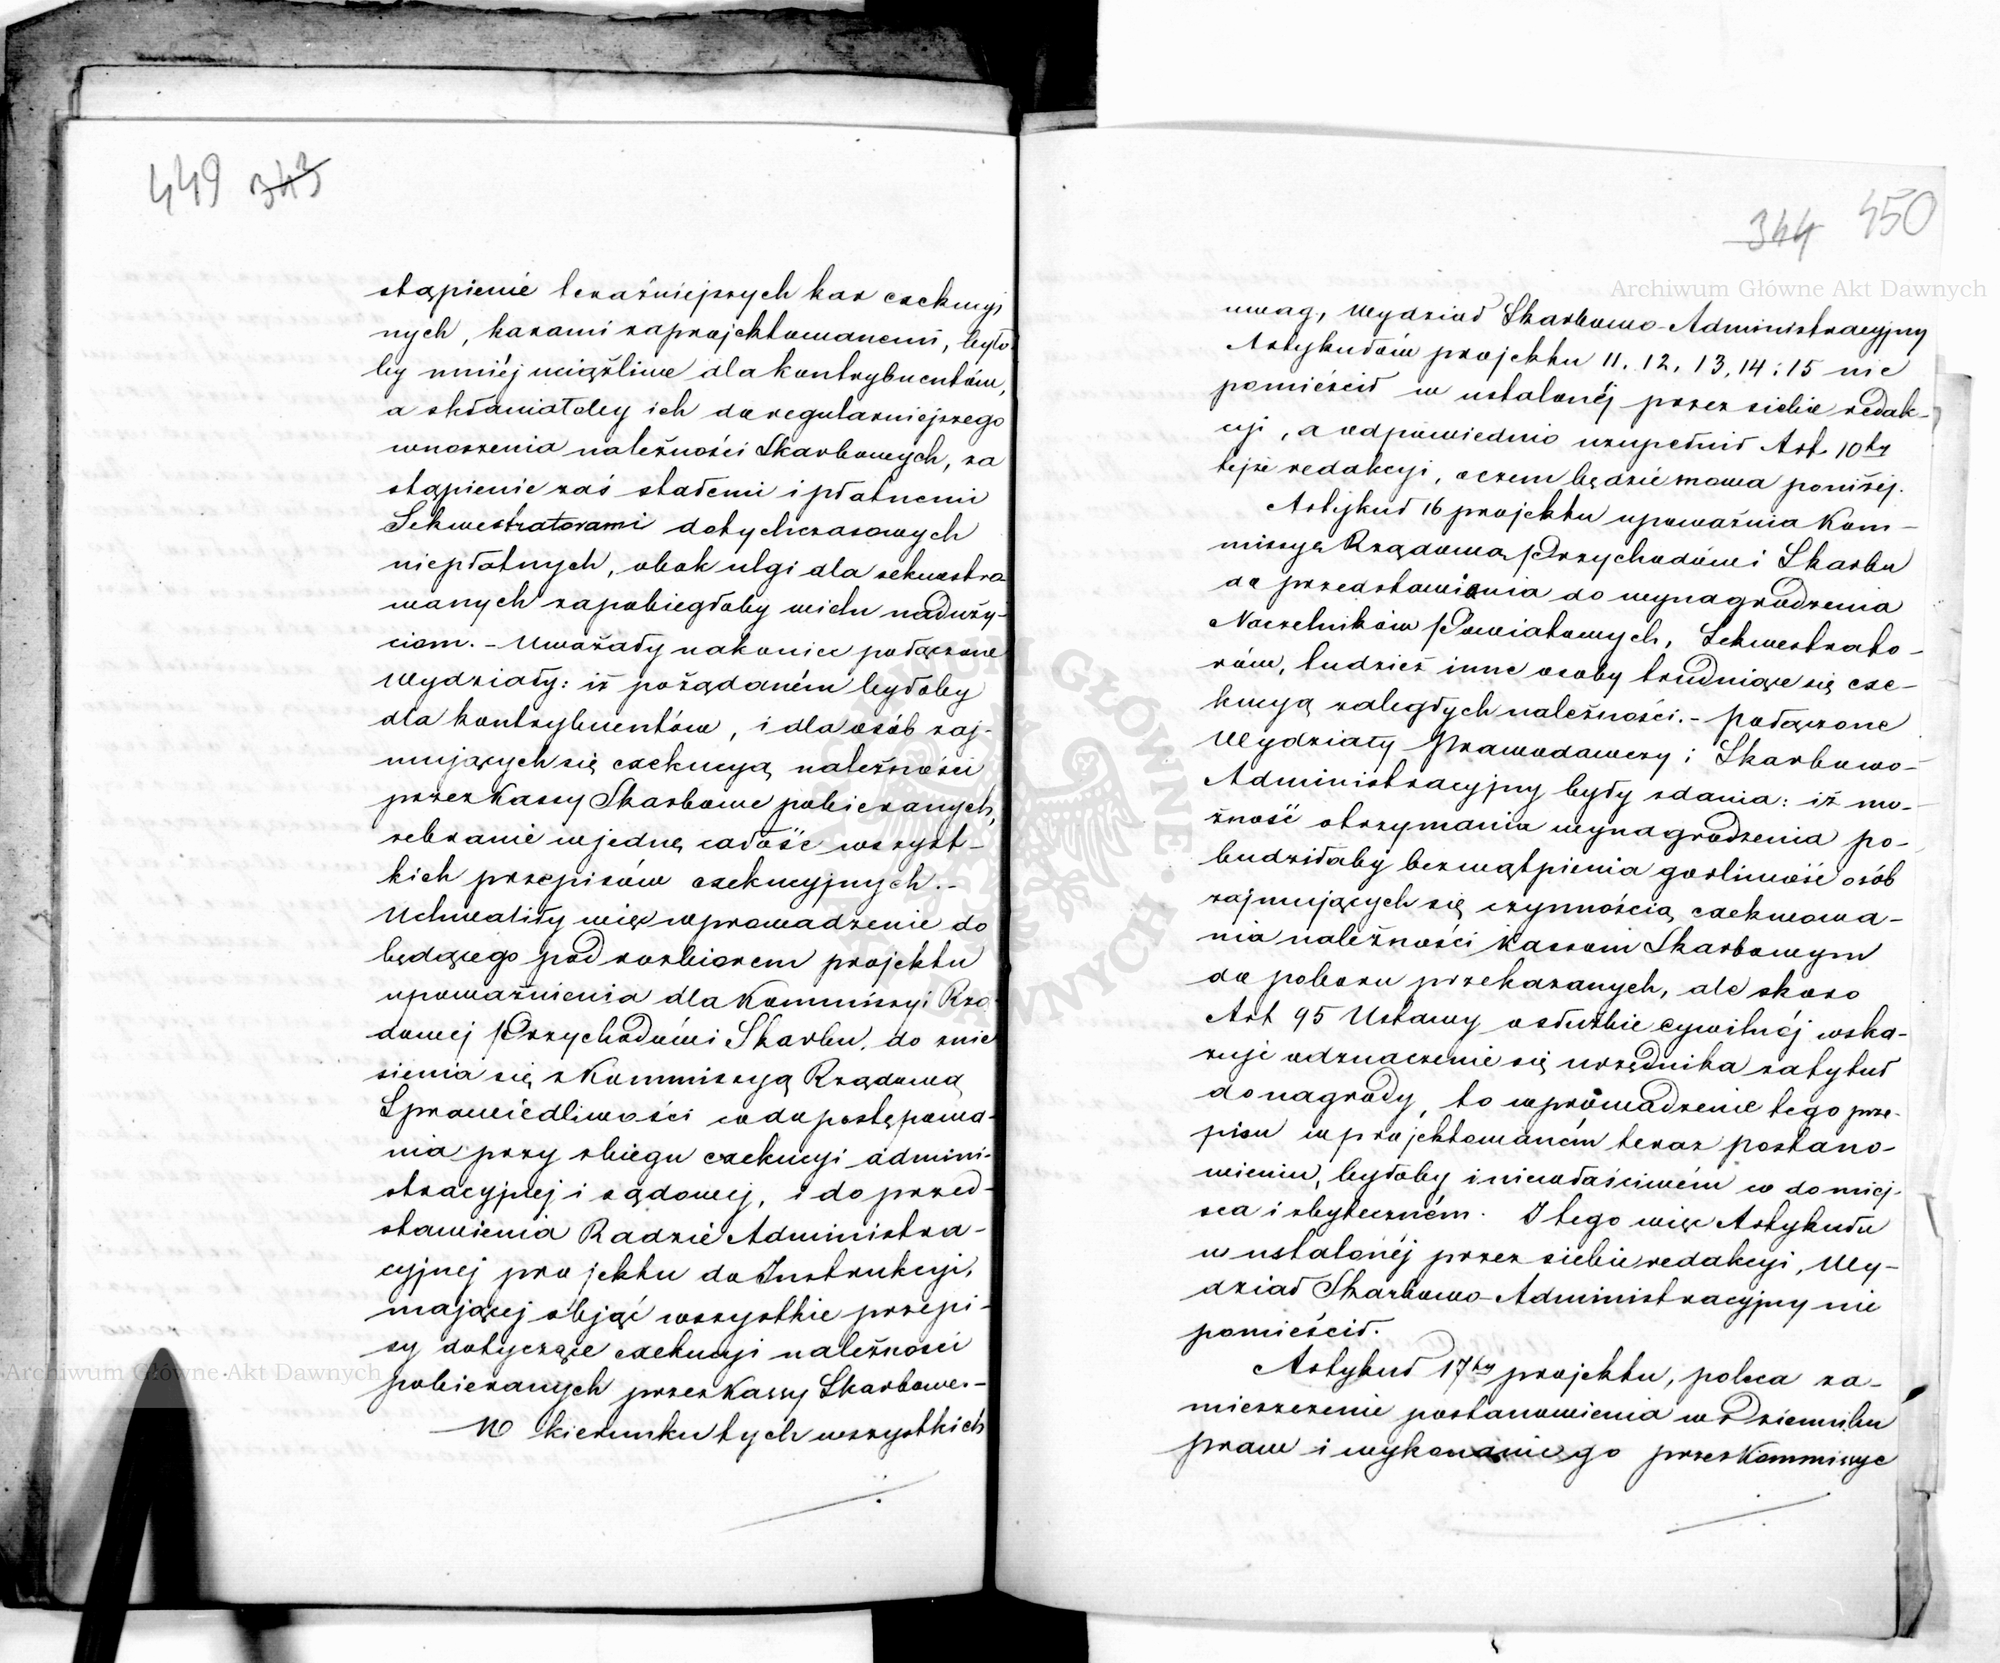 449 343
stąpienie teraźniejszych kar exekucyj
nych, karami zaprojektowanemi, było
by mniej uciążliwe dla kontrybuentów,
a skłaniałoby ich do regularniejszego
wnoszenia należności Skarbowych, za
stąpienie zaś stałemi i płatnemi
Sekwestratorami dotychczasowych
niepłatnych, obok ulgi dla sekwestro
wanych zapobiegłoby wielu naduży-
ciom. - Uważały nakoniec połączone
Wydziały: iż pożądaném byłoby
dla kontrybuentów, i dla osób zaj-
mujących się exekucyą należności
przez Kassy Skarbowe pobieranych,
zebranie w jednę całość wszyst-
kich przepisów exekucyjnych. -
Uchwaliły więc wprowadzenie do
będącego pod rozbiorem projektu
upoważnienia dla Kommissyi Rzą
dowej Przychodów i Skarbu, do znie
sienia się z Kommissyą Rządową
Sprawiedliwości co do postępowa-
nia przy zbiegu exekucyi admini-
stracyjnej i sądowej, i do przed-
stawienia Radzie Administra-
cyjnej projektu do Instrukcyi,
mającej objąć wszystkie przepi-
sy dotyczące exekucyi należności
pobieranych przez Kassy Skarbowe. -
W kierunku tych wszystkich
344 450
Archiwum Główne Akt Dawnych
uwag, Wydział Skarbowo-Administracyjny
Artykułów projektu 11. 12. 13. 14 i 15 nie
pomieścił w ustalonéj przez siebie redak-
cyi, a odpowiednio uzupełnił Art. 10ty
tejże redakcyi, o czem będzie mowa poniżéj.
Artykuł 16 projektu upoważnia Kom-
missyę Rządową Przychodów i Skarbu
do przedstawienia do wynagrodzenia
Naczelników Powiatowych, Sekwestrato-
rów, tudzież inne osoby trudniące się exe-
kucyą zaległych należności. - Połączone
Wydziały Prawodawczy i Skarbowo-
Administracyjny były zdania: iż mo-
żność otrzymania wynagrodzenia po-
budziłaby bezwątpienia gorliwość osób
zajmujących się czynnością exekwowa-
nia należności Kassom Skarbowym
do poboru przekazanych, ale skoro
Art 95 Ustawy o służbie cywilnéj wska-
zuje odznaczenie się urzędnika za tytuł
do nagrody, to wprowadzenie tego prze-
pisu w projektowaném teraz postano-
wieniu, byłoby i niewłaściwém co do miej-
sca i zbyteczném. I tego więc Artykułu
w ustalonéj przez siebie redakcyi, Wy-
dział Skarbowo-Administracyjny nie
pomieścił.
Artykuł 17ty projektu, poleca za-
mieszczenie postanowienia w Dzienniku
praw i wykonanie go przez Kommissye
Archiwum Główne Akt Dawnych